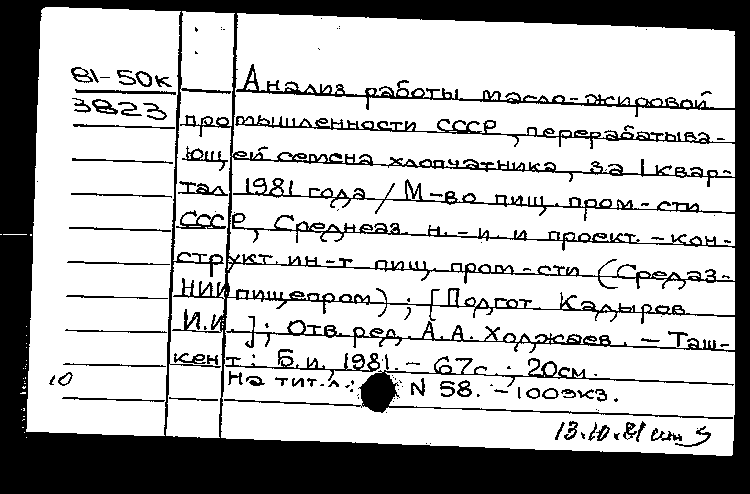 81-50к
3823
Анализ работы масло-жировой
промышленности СССР, перерабатыва-
ющей семена хлопчатника, за I квар-
тал 1981 года / М-во пищ. пром-сти
СССР, Среднеаз. н.-и. и проект.-кон-
структ. ин-т пищ. пром-сти (Средаз-
НИИпищепром) ; [Подгот. Кадыров
И.И.] ; Отв. ред. А.А. Ходжаев. - Таш-
кент : Б.и., 1981. - 67с. ; 20см.
На тит.л.: N 58. - 100экз.
10
13.10.81